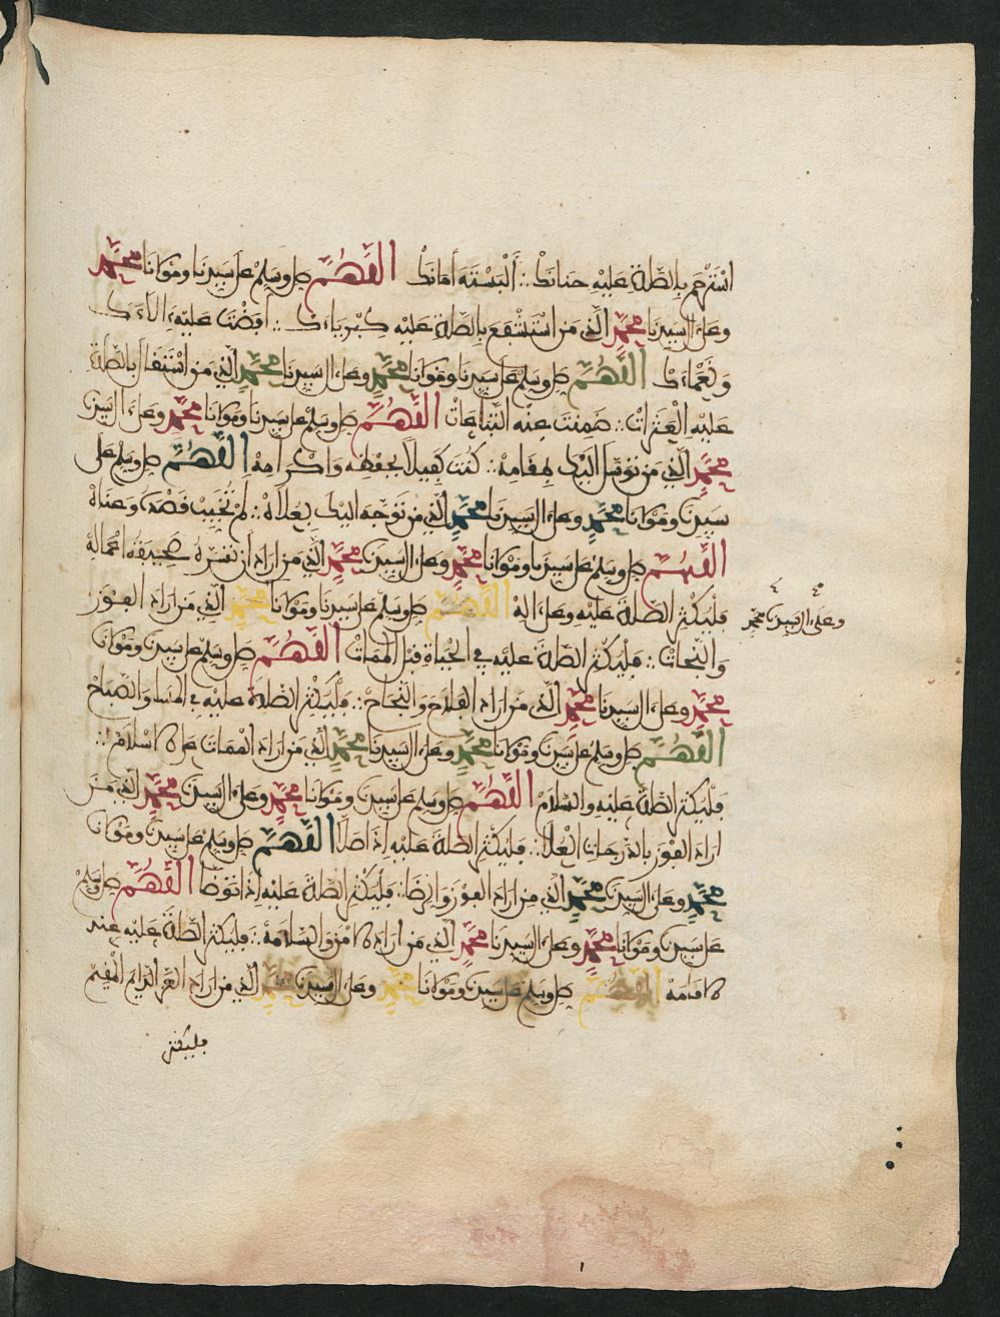 استرحم بالصلاة عليه حنانك ∴ ألبسته أمانك اللهم صل وسلم على سيدنا ومولانا محمد
وعلى ال سيدنا محمد الذي من استشفع بالصلاة عليه كبرياءك ∴ افضت عليه الاءك
ونعماءك اللهم صل وسلم على سيدنا ومولانا محمد وعلى ال سيدنا محمد الذي من استقال بالصلاة
عليه العثرات ∴ ضمنت عنه التباعات اللهم صل وسلم على سيدنا ومولانا محمد وعلى ال سيدنا
محمد الذي من توسل اليك بمقامه ∴ كنت كفيلا بحفظه واكرامه اللهم صل وسلم على
سيدنا ومولانا محمد وعلى ال سيدنا محمد الذي من توجه اليك بعلاه ∴ لم تخيب قصده وعناه
اللهم صل وسلم على سيدنا ومولانا محمد وعلى ال سيدنا محمد الذي من اراد ان تسره صحيفة اعماله
فليكثر الصلاة عليه وعلى اله اللهم صل وسلم على سيدنا ومولانا محمد الذي من اراد الفوز
وعلى ال سيدنا محمد
والنجاة ∴ فليكثر الصلاة عليه في الحياة قبل الممات اللهم صل وسلم على سيدنا ومولانا
محمد وعلى ال سيدنا محمد الذي من اراد الفلاح والنجاح ∴ فليكثر الصلاة عليه في المساء والصباح
اللهم صل وسلم على سيدنا ومولانا محمد وعلى ال سيدنا محمد الذي من اراد الممات على الاسلام ∴
فليكثر الصلاة عليه والسلام اللهم صل وسلم على سيدنا ومولانا محمد وعلى ال سيدنا محمد الذي من
اراد الفوز بالدرجات العلا ∴ فليكثر الصلاة عليه اذا صلا اللهم صل وسلم على سيدنا ومولانا
محمد وعلى ال سيدنا محمد الذي من اراد الفوز والرضا ∴ فليكثر الصلاة عليه اذا توضا اللهم صل وسلم
على سيدنا ومولانا محمد وعلى ال سيدنا محمد الذي من اراد الامن والسلامة ∴ فليكثر الصلاة عليه عند
الاقامة اللهم صل وسلم على سيدنا ومولانا محمد وعلى ال سيدنا محمد الذي من اراد العز الدايم المقيم
فليكثر